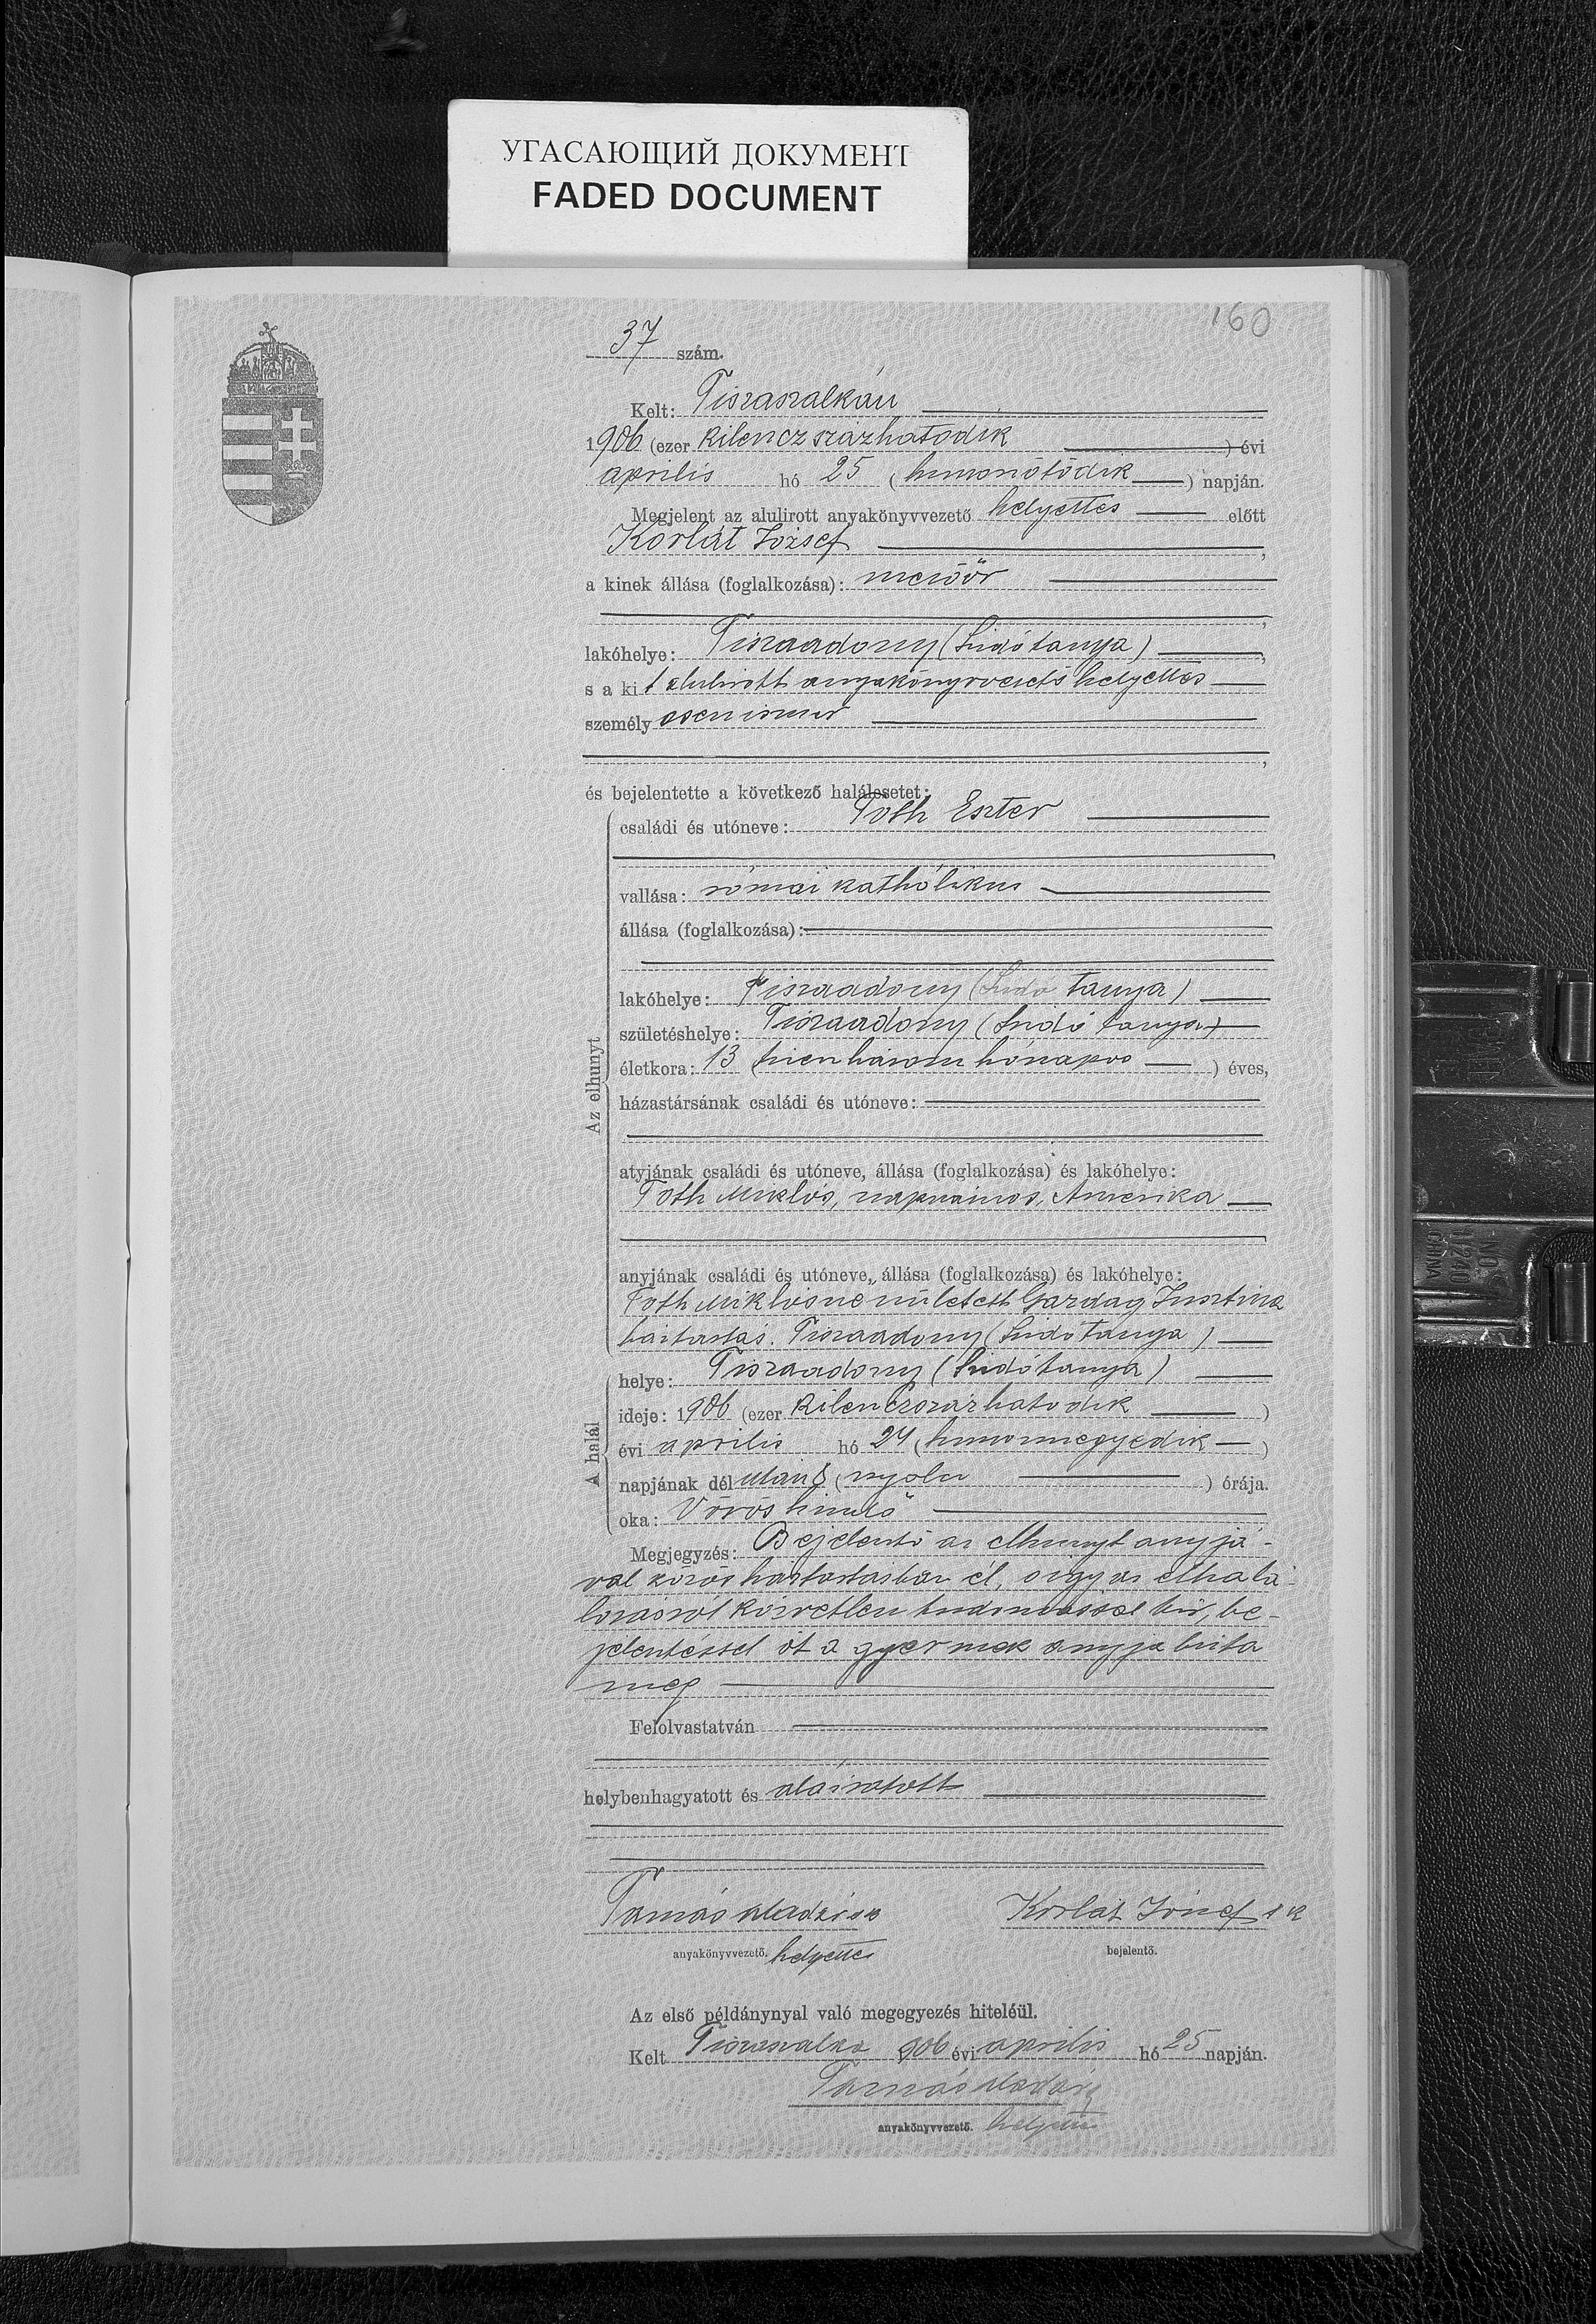 УГАСАЮЩИЙ ДОКУМЕНТ
FADED DOCUMENT
160
37 szám.
Kelt: Tiszaszalkán
1906 (ezer kilenczszázhatodik) évi
aprilis hó 25 (huszonötödik) napján.
Megjelent az alulirott anyakönyvvezető helyettes előtt
Korlát József,
a kinek állása (foglalkozása): mezőőr
lakóhelye: Tiszaadony (Lidó tanya),
s a kit alulirott anyakönyvvezető helyettes
személyesen ismer
és bejelentette a következő halálesetet:
Az elhunyt
családi és utóneve: Tóth Eszter
vallása: római katholikus
állása (foglalkozása):
lakóhelye: Tiszaadony (Lidó tanya)
születéshelye: Tiszaadony (Lidó tanya)
életkora: 13 (tizenhárom hónapos) éves,
házastársának családi és utóneve:
atyjának családi és utóneve, állása (foglalkozása) és lakóhelye:
Tóth Miklós, napszámos, Amerika
anyjának családi és utóneve, állása (foglalkozása) és lakóhelye:
Tóth Miklósné született Gazdag Jusztina
háztartás. Tiszaadony (Lidó tanya)
A halál
helye: Tiszaadony (Lidó tanya)
ideje: 1906 (ezer kilenczszázhatodik)
évi aprilis hó 24 (huszonnegyedik)
napjának délután 8 (nyolcz) órája.
oka: Vörös himlő
Megjegyzés: Bejelentő az elhunyt anyjá-
val közös háztartásban él, s így az elhalá-
lozásról közvetlen tudomással bír, be-
jelentéssel őt a gyermek anyja bízta
meg
Felolvastatván
helybenhagyatott és aláíratott
Tamás Aladár sk Korlát József sk
anyakönyvvezető. helyettes bejelentő.
Az első példánynyal való megegyezés hiteléül.
Kelt Tiszaszalka 906 évi aprilis hó 25 napján.
Tamás Aladár
anyakönyvvezető. helyettes